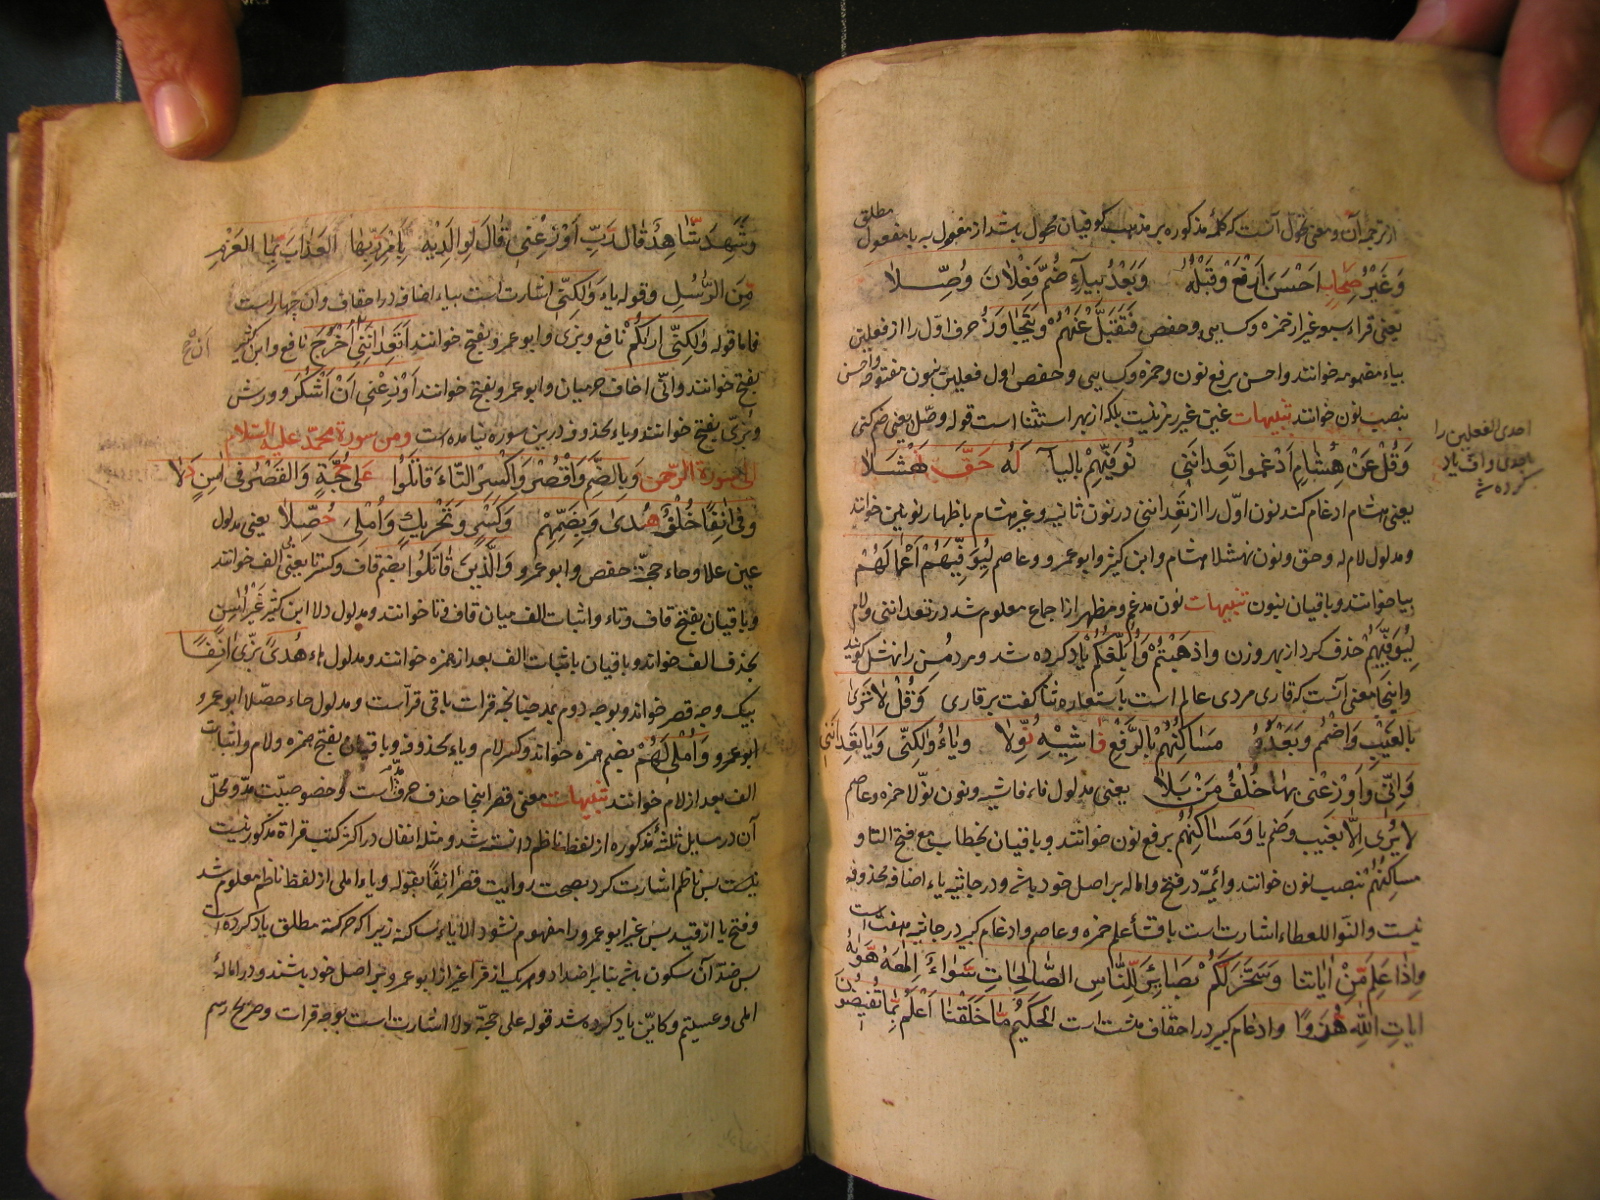 از ترجمه آن و معنی تحول آنست که کلمهٔ مذکوره بر مذهب کوفیان محول باشد از مفعول به یا مفعول مطلق
وَغَيْرُ صِحَابٍ اَحْسَنَ ارْفَعْ وَقَبْلَهُ وَبَعْدُ بِيَاءٍ ضُمَّ فِعْلَانِ وُصِّلَا
یعنی قراء سبعه غیر از حمزه و کسایی و حفص فَتَقَبَّلُ عَنْهُمْ وَيَتَجَاوَزُ حرف اول را از فعلین
بیاء مضمومه خوانند و احسن برفع نون و حمزه و کسایی و حفص اول فعلین بنون مفتوحه و احسن
بنصب نون خوانند تنبیهات عین غیر رمز نیست بلکه از بهر استثنا است قوله وصل یعنی ضم کنی
وَقُلْ عَنْ هِشَامٍ اَدْغَمُوا تَعِدَانِنِي نُوَفِّيَهُمْ بِالْيَا لَهُ حَقَّ نَهْشَلَا
یعنی هشام ادغام کند نون اول را از تَعِدَانِنِي در نون ثانیه و غیر هشام باظهار نونین خوانند
و مدلول لام له و حق و نون نهشلا هشام و ابن کثیر و ابوعمرو و عاصم لِيُوَفِّيَهُمْ اَعْمَالَهُمْ
بیا خوانند و باقیان بنون تنبیهات نون مدغم و مظهر از اجماع معلوم شد در تعداننی و لام
لِيُوَفِّيَهُمْ حذف کرد از بهر وزن و اذهبتم وَاُبَلِّغُكُمْ یاد کرده شد و مرد مسن را نهشل گویند
و اینجا معنی آنست که قاری مردی عالم است باستعاره ثنا گفت بر قاری وَقُلْ لَا تَرَى
بِالْغَيْبِ وَاضْمُمْ وَبَعْدَهُ مَسَاكِنُهُمْ بِالرَّفْعِ فَاشِيهِ نُوِّلَا وَيَاءُ وَلٰكِنِّي وَيَا تَعِدَانِنِي
وَاِنِّي وَاَوْزِعْنِي بِهَا خُلْفُ مَنْ بَلَا یعنی مدلول فاء فاشیه و نون نولا حمزه و عاصم
لَا يُرَى اِلَّا بغیب و ضم یا وَمَسَاكِنُهُمْ برفع نون خوانند و باقیان بخطاب مع فتح التا و
مَسَاكِنَهُمْ بنصب نون خوانند و ائمه در فتح و اماله بر اصل خود باشند و در جاثیه یاء اضافه محذوفه
نیست و النوال العطاء اشارت است باقتفاء علم حمزه و عاصم و ادغام کبیر در جاثیه هفت است
وَاِذَا عَلِمَ مِنْ اٰيَاتِنَا وَسَخَّرَ لَكُمْ بَصَائِرُ لِلنَّاسِ الصَّالِحَاتِ سَوَاءً اِلٰهَهُ هَوٰيهُ
اٰيَاتِ اللّٰهِ هُزُوًا و ادغام کبیر در احقاف هشت است الْحَكِيمُ مَا خَلَقْنَا اَعْلَمُ بِمَا تُفِيضُونَ
احدی الفعلین را
یاد
کرده شد
وَشَهِدَ شَاهِدٌ قَالَ رَبِّ اَوْزِعْنِي قَالَ لِوَالِدَيْهِ بِاَمْرِ رَبِّهَا الْعَذَابَ بِمَا الْعَزْمِ
مِنَ الرُّسُلِ و قوله یاء وَلٰكِنِّي اشارت است بیاء اضافه در احقاف و آن چهار است
اما قوله وَلٰكِنِّي اَرٰيكُمْ نافع و بزی و ابوعمرو بفتح خوانند اَتَعِدَانِنِي اَنْ اُخْرَجَ نافع و ابن کثیر
بفتح خوانند و اِنِّي اَخَافُ حرمیان و ابوعمرو بفتح خوانند اَوْزِعْنِي اَنْ اَشْكُرَ و ورش
و بزی بفتح خوانند و یاء محذوف درین سوره نیامده است ومن سورة محمد علیه السلام
الی سورة الرحمن وَبِالضَّمِّ وَاقْصُرْ وَاكْسِرِ التَّاءَ قَاتَلُوا عَلَى حُجَّةٍ وَالْقَصْرُ فِي اٰسِنٍ دَلَا
وَفِي اٰنِفًا خُلْفٌ هُدًى وَبِضَمِّهِمْ وَكَسْرٍ وَتَحْرِيكٍ وَاُمْلِيَ حُصِّلَا یعنی مدلول
عین علا و حاء حجة حفص و ابوعمرو وَالَّذِينَ قَاتَلُوا بضم قاف و کسر تا بی الف خوانند
و باقیان بفتح قاف و تاء و اثبات الف میان قاف و تا خوانند و مدلول دلا ابن کثیر غَيْرِ اٰسِنٍ
بحذف الف خواند و باقیان باثبات الف بعد از همزه خوانند و مدلول هاء هُدًى بزی اٰنِفًا
بیک وجه قصر خواند و بوجه دوم بمد چنانچه قرات باقی قراست و مدلول حاء حصلا ابوعمرو
ابوعمرو وَاُمْلِيَ لَهُمْ بضم همزه خواند و کسر لام و یاء محذوفه و باقیان بفتح همزه و لام و اثبات
الف بعد از لام خوانند تنبیهات معنی قصر اینجا حذف حرف مد است و خصوصیت مد و محل
آن در مسایل ثلثهٔ مذکوره از لفظ ناظم دانسته شد و مثله انفال در اکثر کتب قراة مذکور نیست
نیست پس ناظم اشارت کرد بصحت روایت قصر اٰنِفًا بقوله و یاء املی از لفظ ناظم معلوم شد
و فتح یا از قید پس غیر ابوعمرو را مفهوم نشود الا یاء ساکنه زیرا که حرکت مطلق یاد کرده است
پس ضد آن سکون باشد بنا بر اضداد و هر یک از قرا غیر از ابوعمرو بر اصل خود باشند و در امالهٔ
املی و عسیتم و کاین یاد کرده شد قوله علی حجة و دلا اشارت است بوجه قرات و صریح رسم